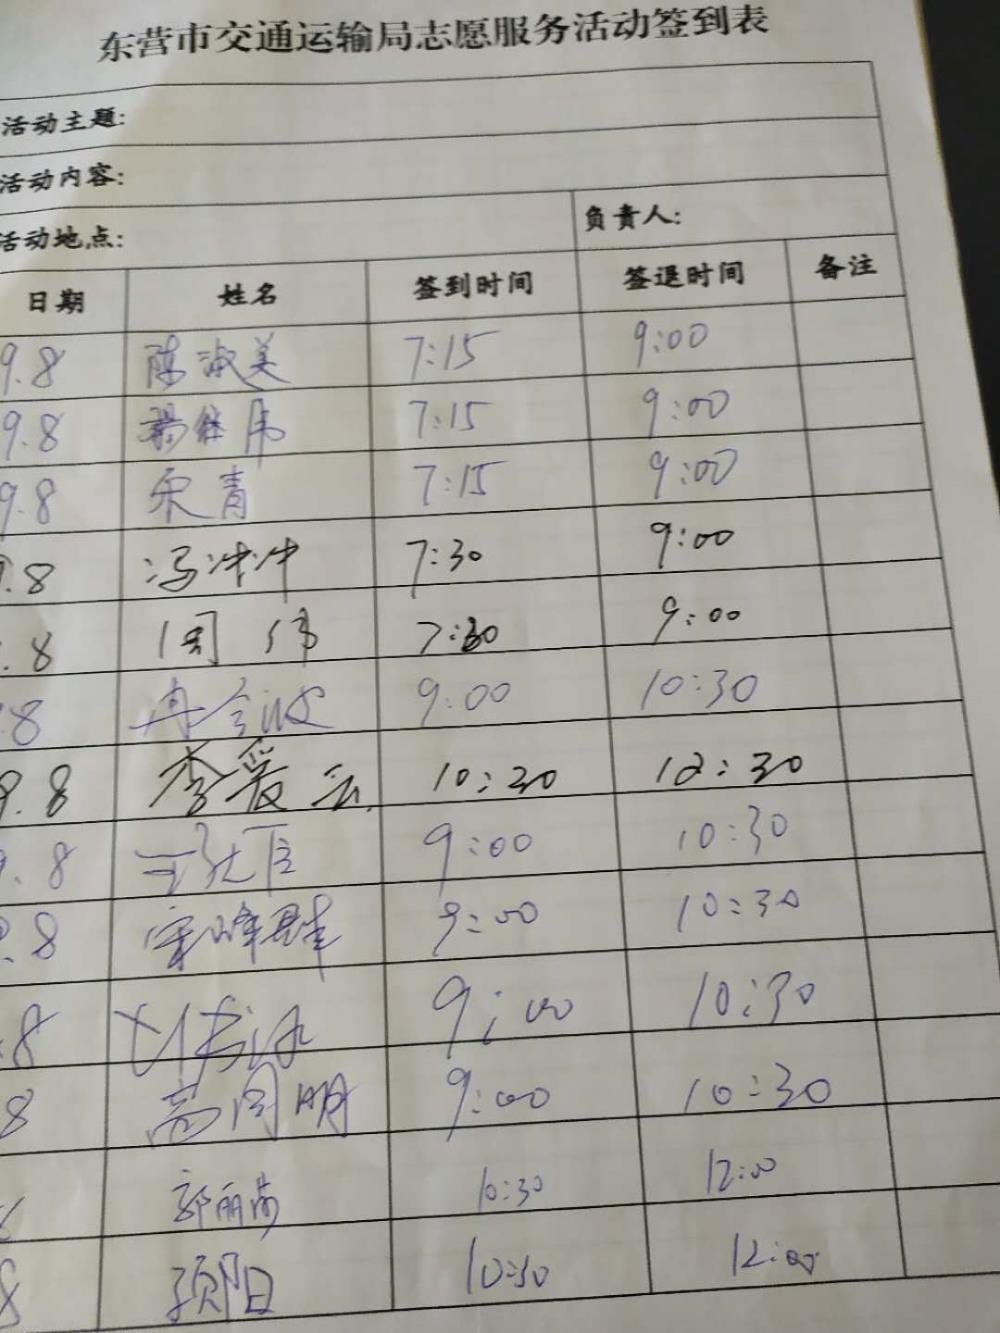 东营市交通运输局志愿服务活动签到表
活动主题:
活动内容:
活动地点: 负责人:
日期 姓名 签到时间 签退时间 备注
9.8 陈淑美 7:15 9:00
9.8 杨继伟 7:15 9:00
9.8 宋青 7:15 9:00
9.8 冯冲冲 7:30 9:00
.8 周伟 7:30 9:00
.8 9:00 10:30
9.8 李爱云 10:30 12:30
9.8 9:00 10:30
9.8 宋峰群 9:00 10:30
.8 9:00 10:30
8 高同明 9:00 10:30
郭丽莎 10:30 12:00
8 顼阳 10:30 12:00